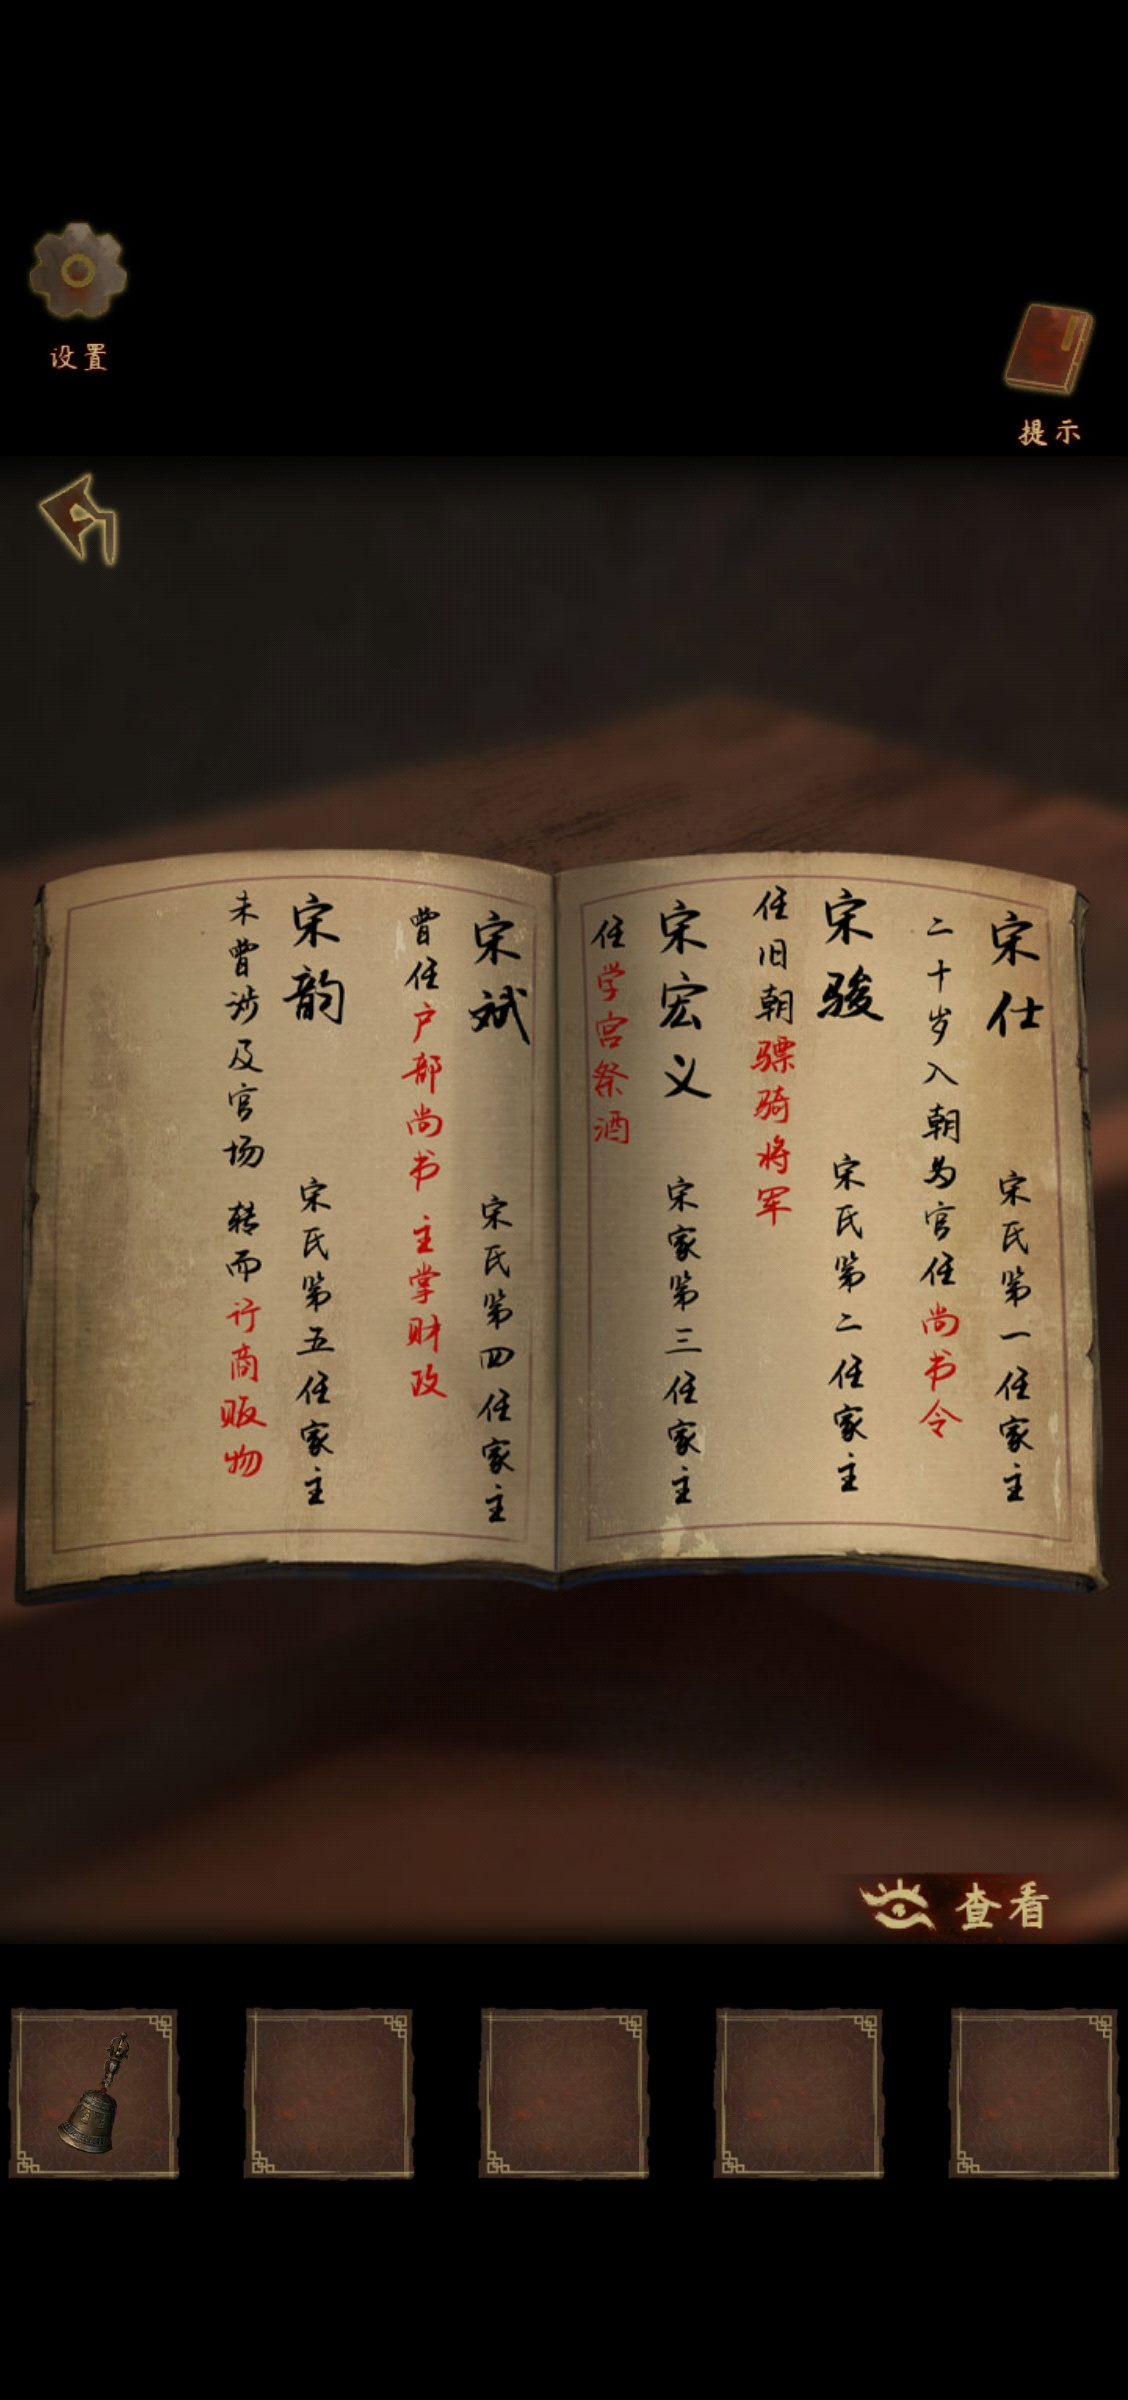 设置
提示
宋仕 宋氏第一任家主
二十岁入朝为官任尚书令
宋骏 宋氏第二任家主
任旧朝骠骑将军
宋宏义 宋家第三任家主
任学宫祭酒
宋斌 宋氏第四任家主
曾任户部尚书 主掌财政
宋韵 宋氏第五任家主
未曾涉及官场 转而行商贩物
查看